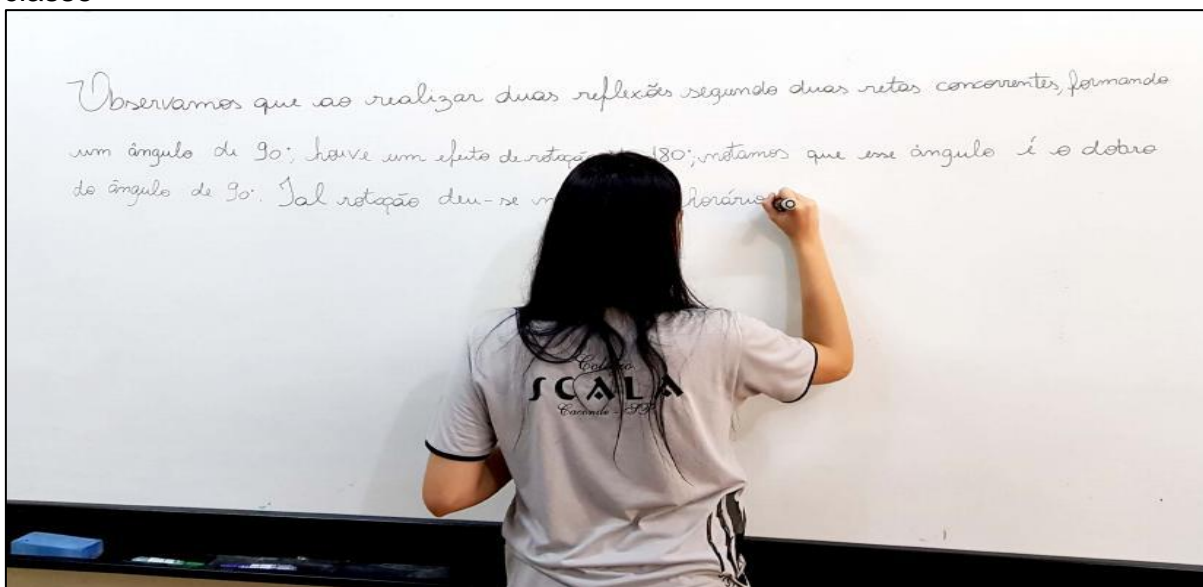 Observamos que ao realizar duas reflexões segundo duas retas concorrentes, formando
um ângulo de 90°, houve um efeito de rotação 180°; notamos que esse ângulo é o dobro
do ângulo de 90°. Tal rotação deu-se horário
Colégio
SCALA
Caconde - SP